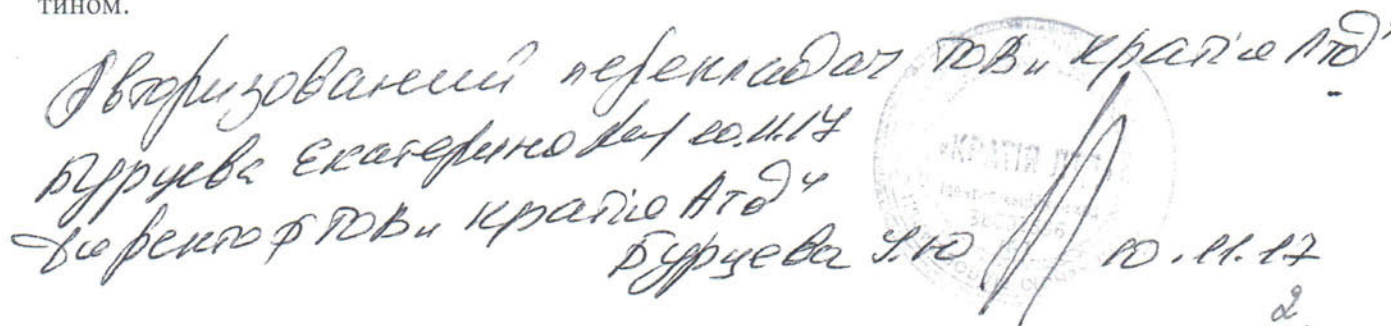 тином.
Авторизований перекладач ТОВ „Кратіа Лтд"
Бурцева Екатерина 20.11.17
Директор ТОВ „Кратіа Лтд"
Бурцева І.Ю 20.11.17
2